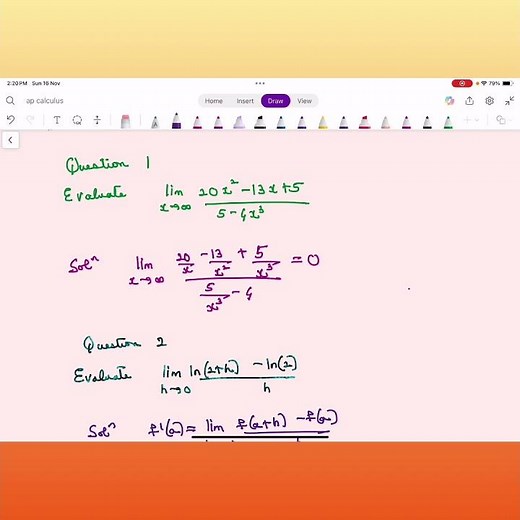 2:20 PM Sun 16 Nov
79%
ap calculus
Home Insert Draw View
Question 1
Evaluate lim x→∞ (20x² - 13x + 5)/(5 - 4x³)
Solⁿ lim x→∞ (20/x - 13/x² + 5/x³)/(5/x³ - 4) = 0
Question 2
Evaluate lim h→0 (ln(2+h) - ln(2))/h
Solⁿ f'(a) = lim f(a+h) - f(a)